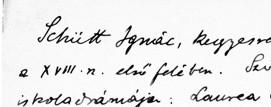 Schütt Ignác, kegyesre
a XVIII. n. első felében. Sze
iskoladrámája: Laurea